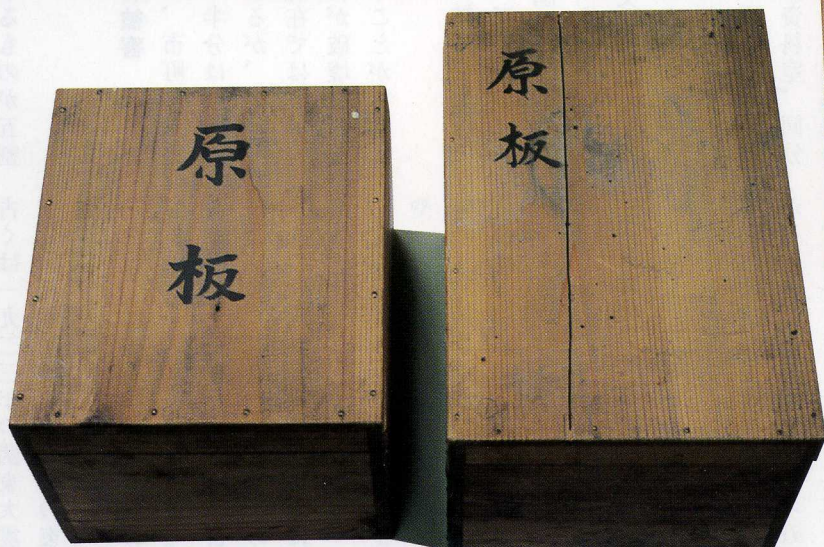 原板
原板